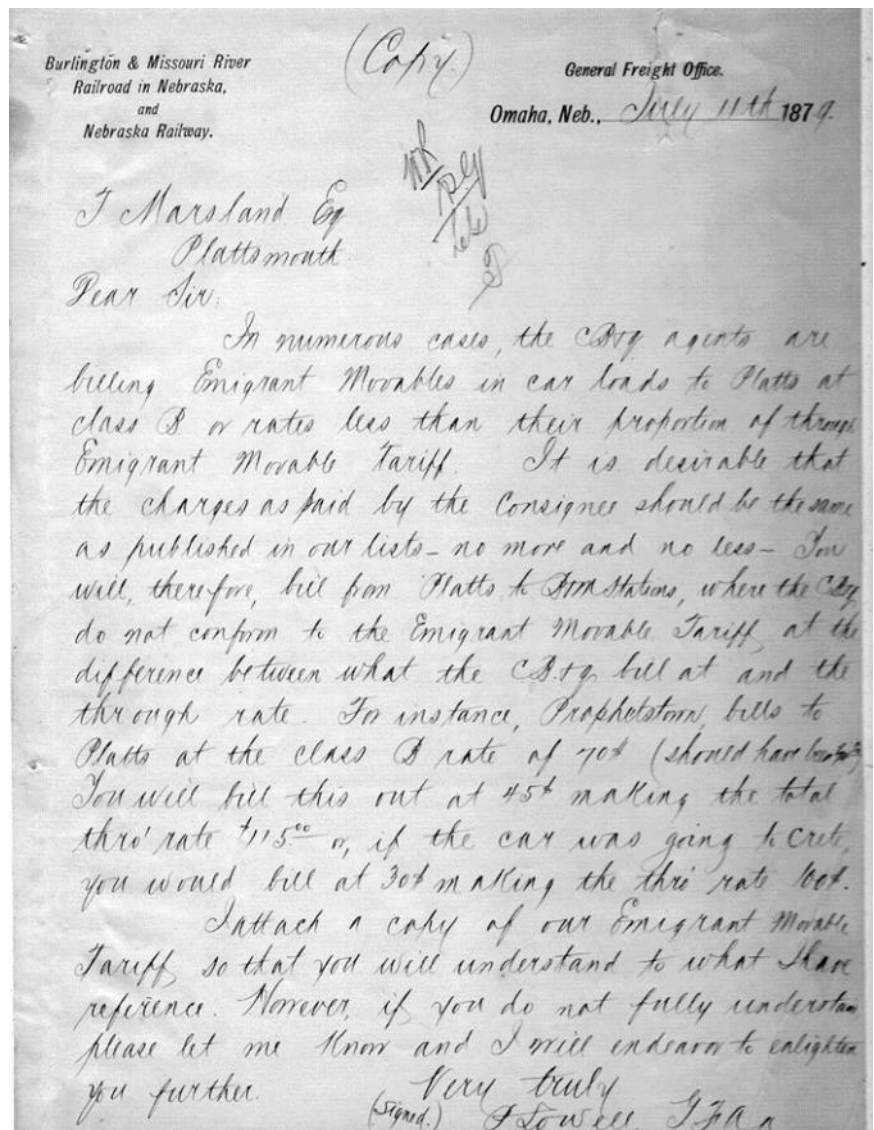 Burlington & Missouri River
Railroad in Nebraska,
and
Nebraska Railway.
(Copy.)
General Freight Office.
Omaha, Neb., July 11th 1879.
T Marsland Esq
Plattsmouth
Dear Sir:
In numerous cases, the CB&Q agents are
billing Emigrant Movables in car loads to Platts at
class B or rates less than their proportion of through
Emigrant Movable Tariff. It is desirable that
the charges as paid by the Consignee should be the same
as published in our lists - no more and no less - You
will, therefore, bill from Platts to B&M Stations, where the CB&Q
do not conform to the Emigrant Movable Tariff, at the
difference between what the CB&Q bill at and the
through rate. For instance, Prophetstown, bills to
Platts at the class B rate of 70$ (should have been
You will bill this out at 45$ making the total
thro' rate $115.00 or, if the car was going to Crete,
you would bill at 30$ making the thro' rate 100$.
I attach a copy of our Emigrant Movable
Tariff, so that you will understand to what I have
reference. However, if you do not fully understan
please let me know and I will endeavor to enlighten
you further.
Very truly
(Signed.) Lowell G F A